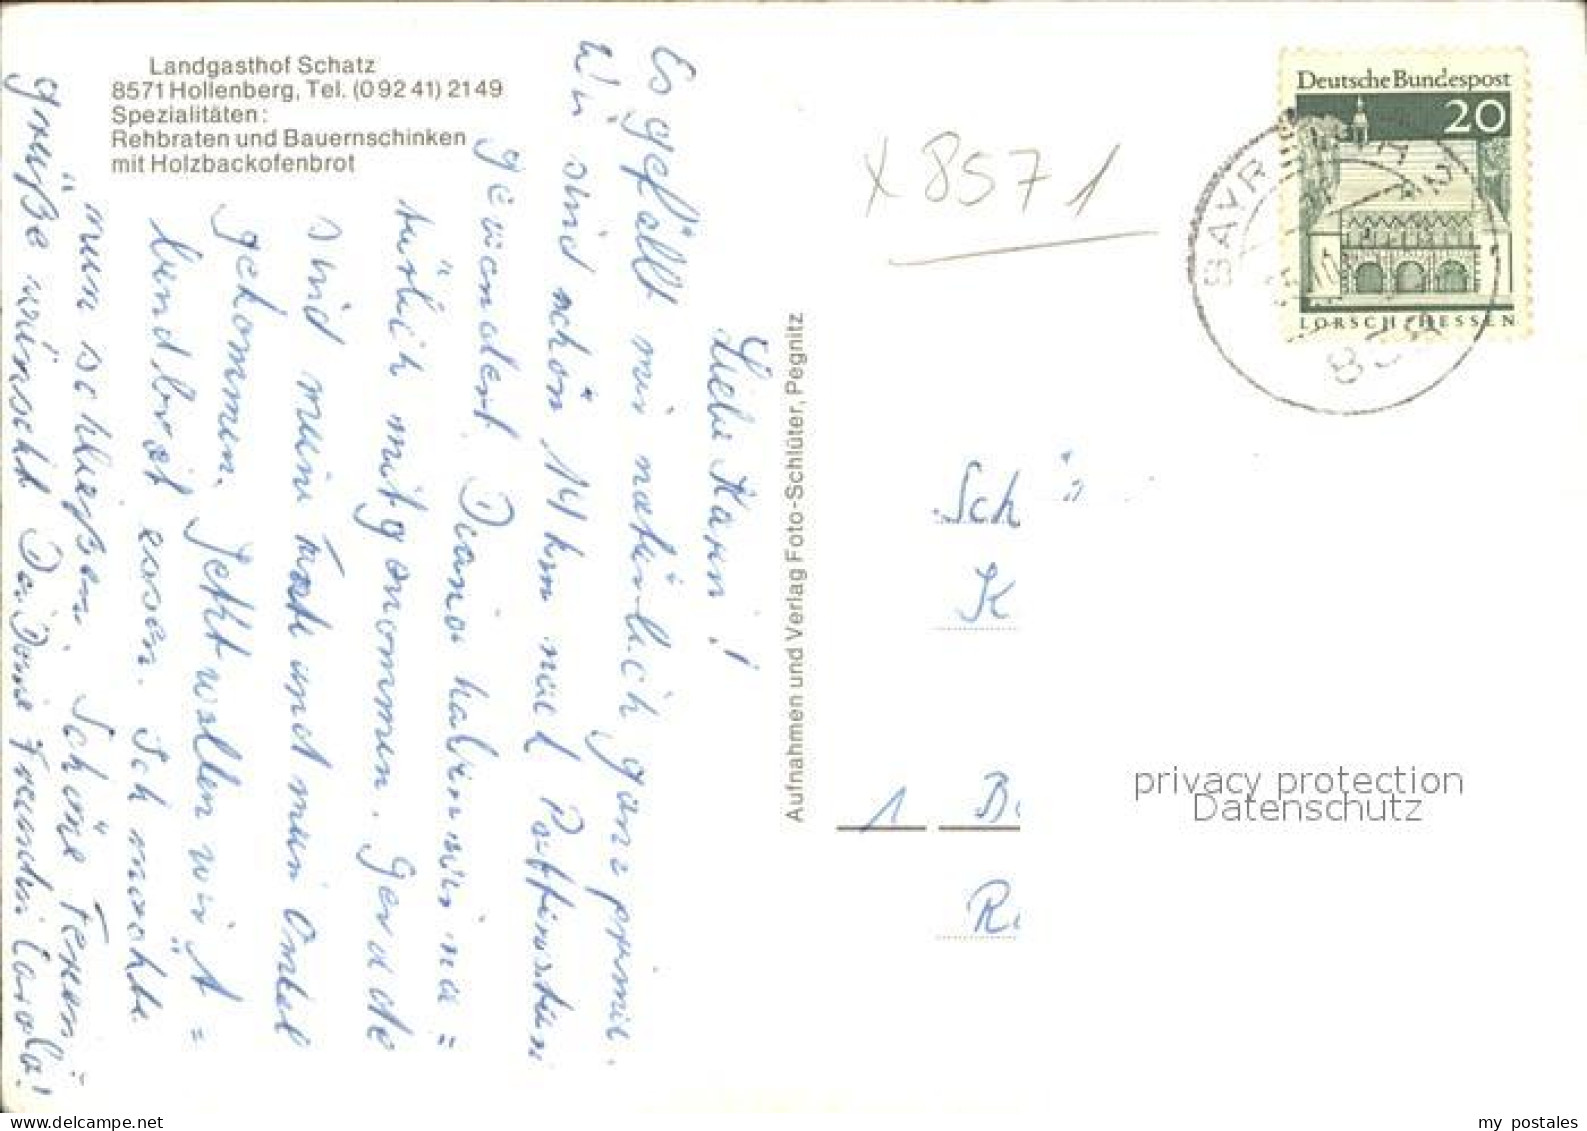 Landgasthof Schatz
8571 Hollenberg, Tel. (0 92 41) 2149
Spezialitäten:
Rehbraten und Bauernschinken
mit Holzbackofenbrot
Liebe Karin!
Es gefällt mir natürlich ganz prima.
Wir sind schon 14 km nach Pottenstein
gewandert. Diana haben wir na=
türlich mitgenommen. Gerade
sind meine Tante und mein Onkel
gekommen. Jetzt wollen wir A=
bendbrot essen. Ich möchte
nun schließen. Schöne Ferien
grüße wünscht Dir Deine Freundin Carola!
Aufnahmen und Verlag Foto-Schlüter, Pegnitz
x 8571
Deutsche Bundespost
20
LORSCH HESSEN
BAYREUTH
Sch
K
1 B
R
privacy protection
Datenschutz
my postales